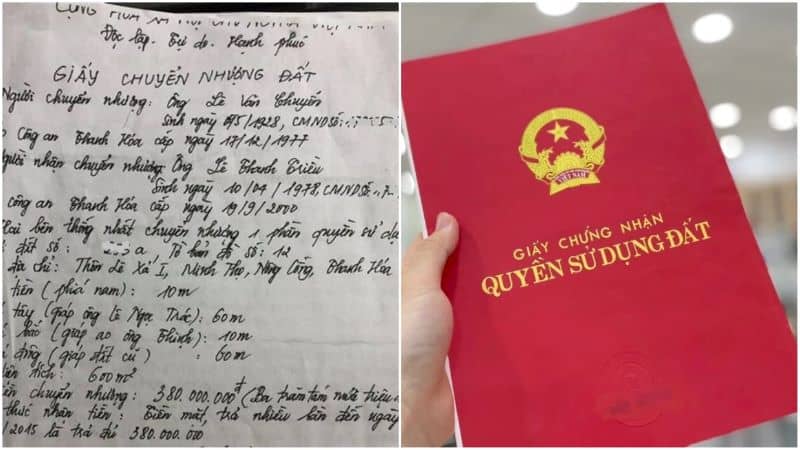 CỘNG HÒA XÃ HỘI CHỦ NGHĨA VIỆT NAM
Độc lập - Tự do - Hạnh phúc
GIẤY CHUYỂN NHƯỢNG ĐẤT
Người chuyển nhượng: Ông Lê Văn Chuyền
Sinh ngày /1928, CMND Số:
Công an Thanh Hóa cấp ngày 17/12/1977
Người nhận chuyển nhượng: Ông Lê Thanh Triều
Sinh ngày 10/04/1978, CMND Số:
công an Thanh Hóa cấp ngày 19/9/2000
Hai bên thống nhất chuyển nhượng 1 phần quyền sử dụ
đất số: a Tờ bản đồ số: 12
địa chỉ: Thôn Lê Xá I, Minh Thọ, Nông Cống, Thanh Hóa
tiền (phía nam): 10m
tây (giáp ông Lê Ngọc Trác): 60m
bắc (giáp ao ông Thịnh): 10m
đông (giáp đất cũ): 60m
tích: 600m²
chuyển nhượng: 380.000.000đ (Ba trăm tám mươi triệu
thức nhận tiền: Tiền mặt, trả nhiều lần đến ngày
/2015 là trả đủ 380.000.000
VIỆT NAM
GIẤY CHỨNG NHẬN
QUYỀN SỬ DỤNG ĐẤT